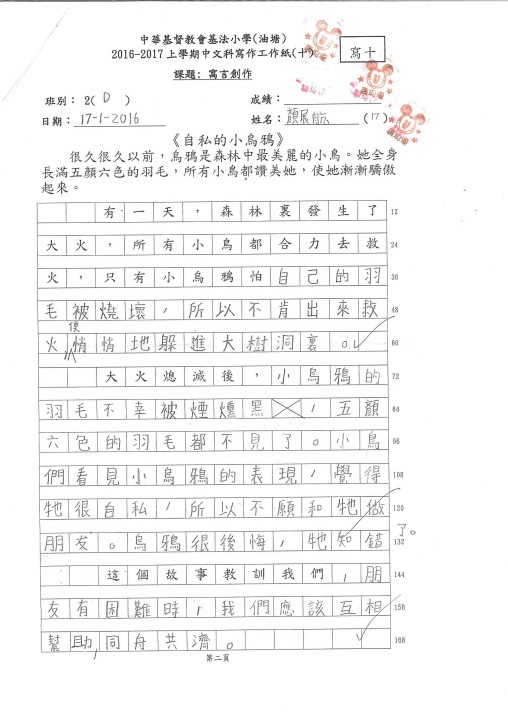 中華基督教會基法小學(油塘)
2016-2017上學期中文科寫作工作紙(十)
寫十
課題: 寓言創作
班別: 2( D )
成績:
日期: 17-1-2016
姓名: (17)
《自私的小烏鴉》
很久很久以前，烏鴉是森林中最美麗的小鳥。她全身
長滿五顏六色的羽毛，所有小鳥都讚美她，使她漸漸驕傲
起來。
有一天，森林裏發生了 12
大火，所有小鳥都合力去救 24
火，只有小烏鴉怕自己的羽 36
毛被燒壞，所以不肯出來救 48
便
火悄悄地躲進大樹洞裏。 60
大火熄滅後，小烏鴉的 72
羽毛不幸被煙燻黑，五顏 84
六色的羽毛都不見了。小鳥 96
們看見小烏鴉的表現，覺得 108
牠很自私，所以不願和牠做 120
朋友。烏鴉很後悔，牠知錯 132 了。
這個故事教訓我們，朋 144
友有困難時，我們應該互相 156
幫助，同舟共濟。 168
第二頁